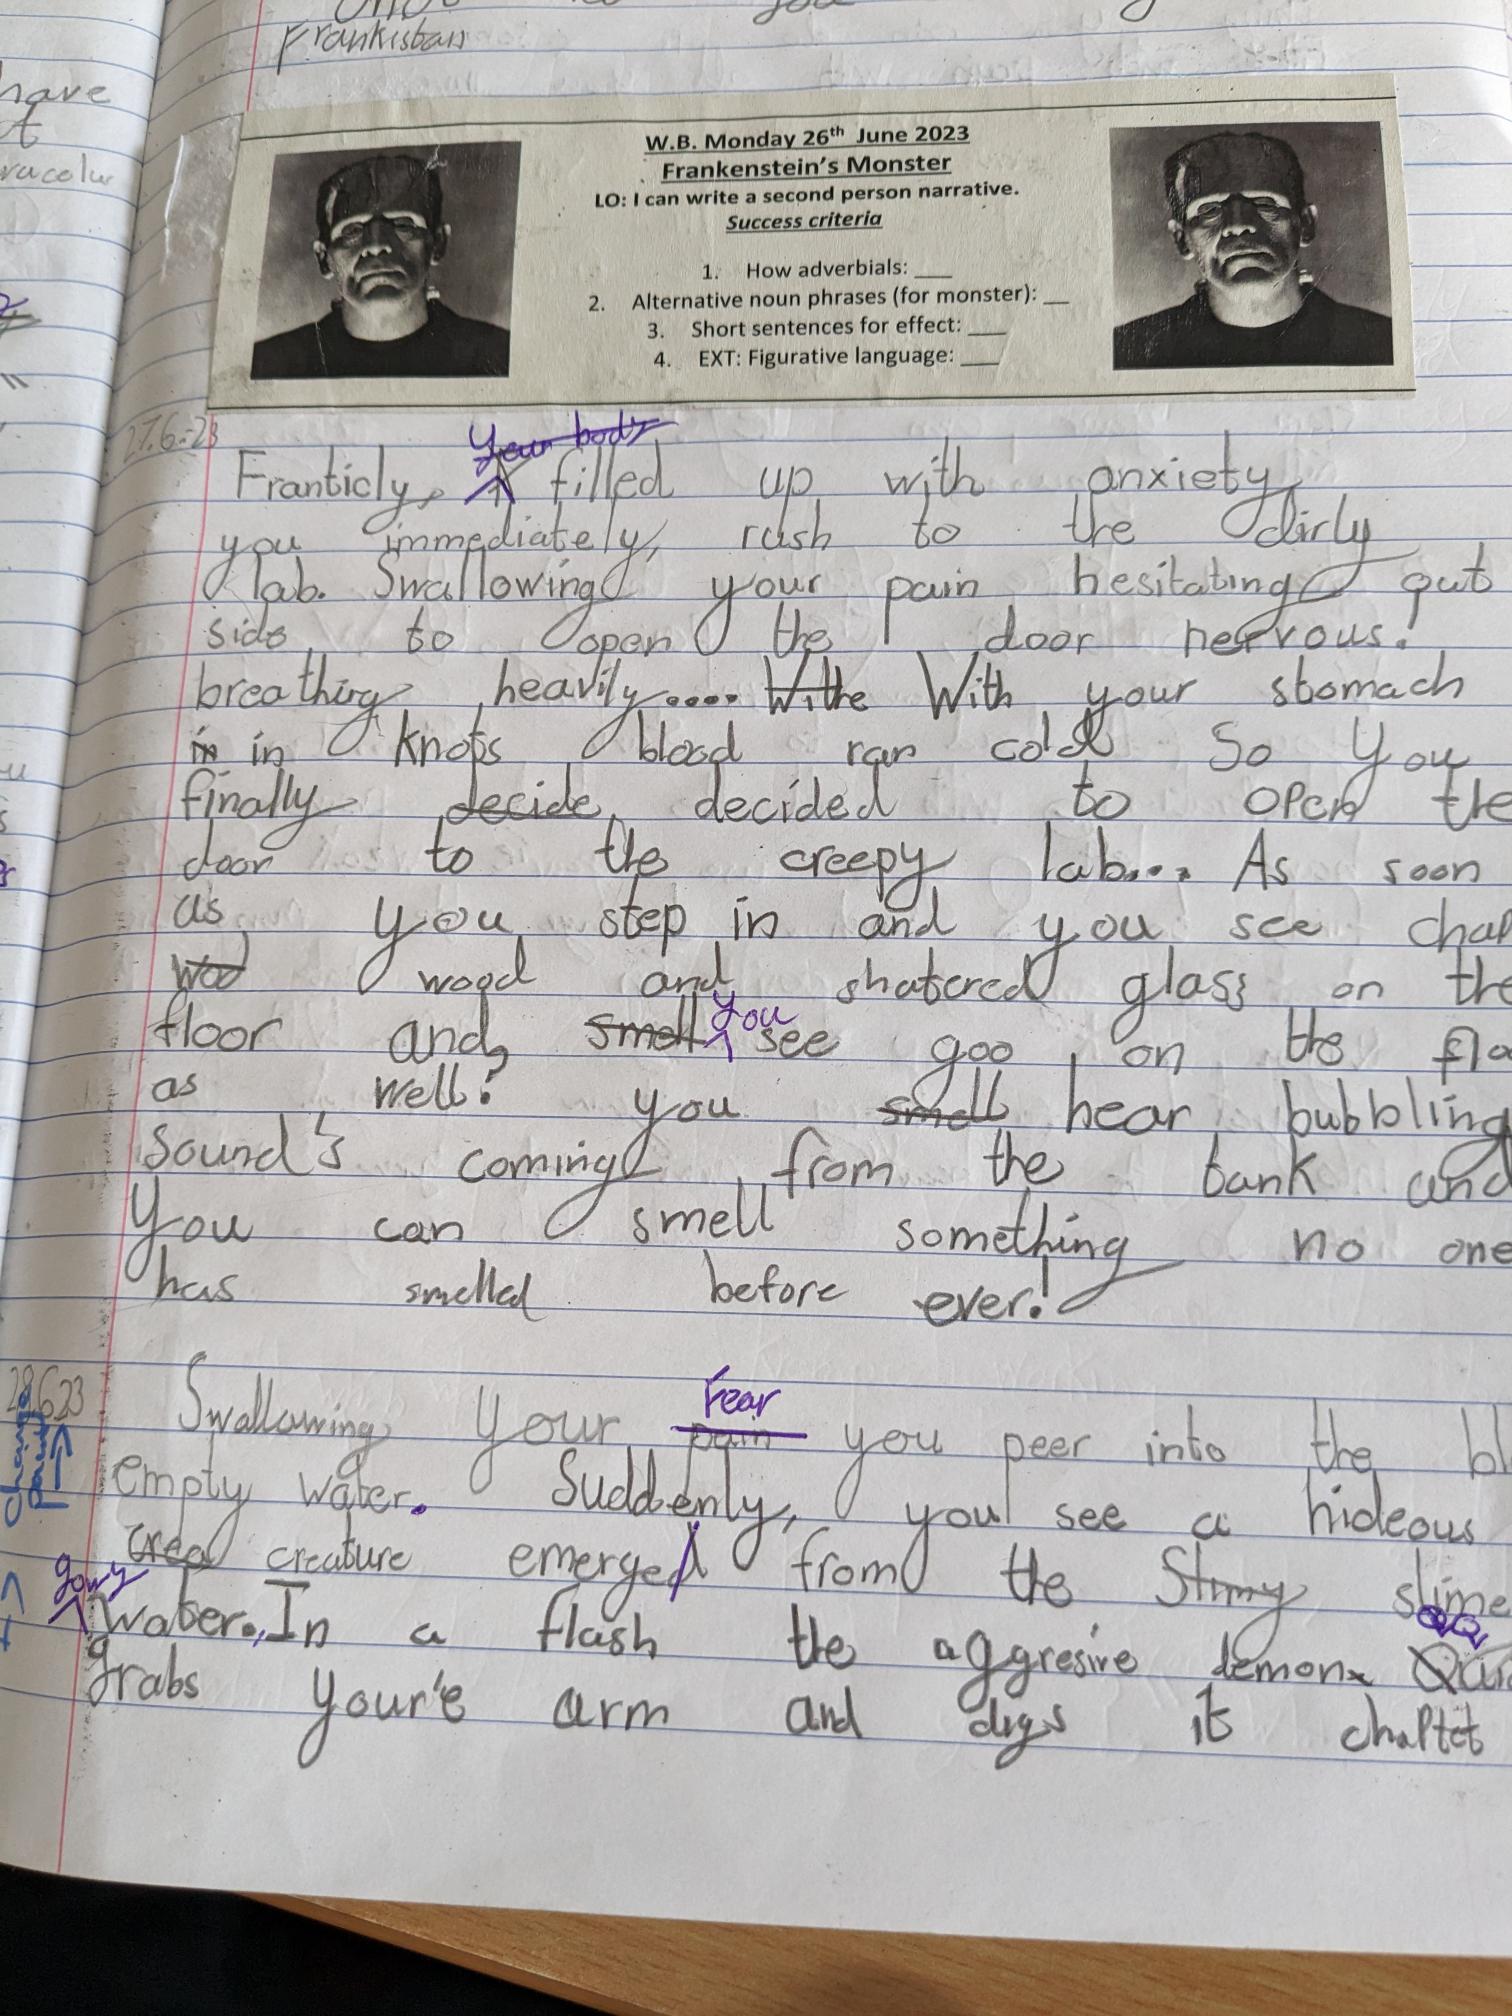 Frankistan
have
W.B. Monday 26th June 2023
Frankenstein's Monster
LO: I can write a second person narrative.
Success criteria
1. How adverbials: ___
2. Alternative noun phrases (for monster): __
3. Short sentences for effect: ___
4. EXT: Figurative language: ___
27.6.23
Your body
Franticly, filled up with anxiety,
you immediately, rush to the dirly
lab. Swallowing your pain hesitating out
side to open the door nervous!
breathing heavily.... Withe With your stomach
in in knots blood ran cold So you
finally decide decided to open the
door to the creepy lab... As soon
as you step in and you see
wod wood and shatered glass on the
you
floor and, smell see goo on the
as well! you smell hear bubbling
Sound's coming from the tank and
You can smell something no one
has smelled before ever!
28.6.23
change
paint
Fear
Swallowing your pain you peer into the
empty water. Suddenly, you see a hideous
crea creature emerged from the Slimy slime
gowy
water. In a flash the aggresive demon
grabs your'e arm and digs it